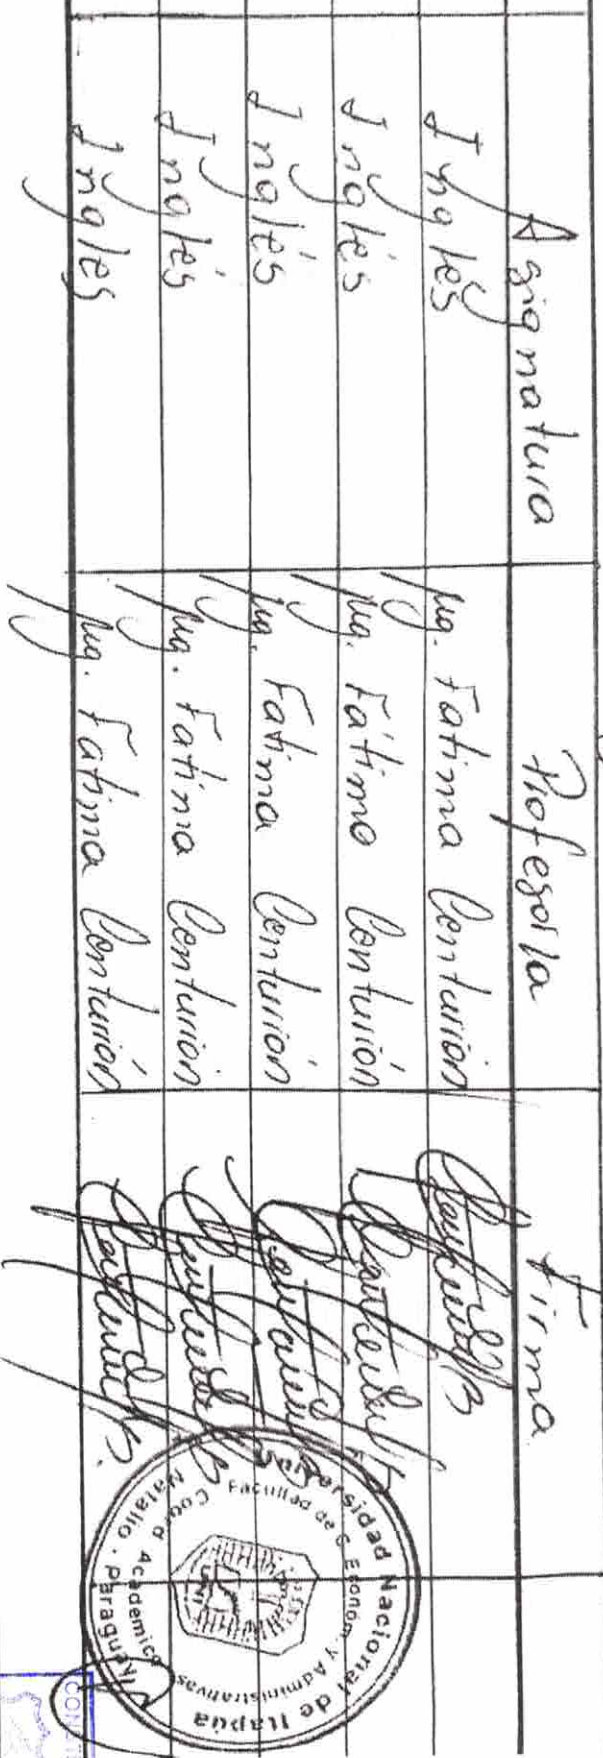 Asignatura Profesor/a Firma
Inglés Mg. Fatima Centurión
Inglés Mg. Fátima Centurión
Inglés Mg. Fatima Centurión
Inglés Mg. Fatima Centurión
Inglés Mg. Fátima Centurión
Universidad Nacional de Itapúa
Facultad de C. Econom y Administrativas
Coord Academica
Natalio - Paraguay
CON